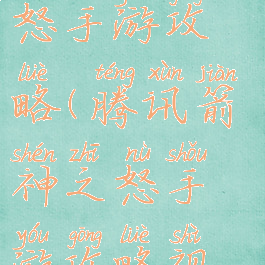 怒手游攻
lüè téng xùn jiàn
略(腾讯箭
shén zhī nù shǒu
神之怒手
yóu gōng lüè shì
游攻略视